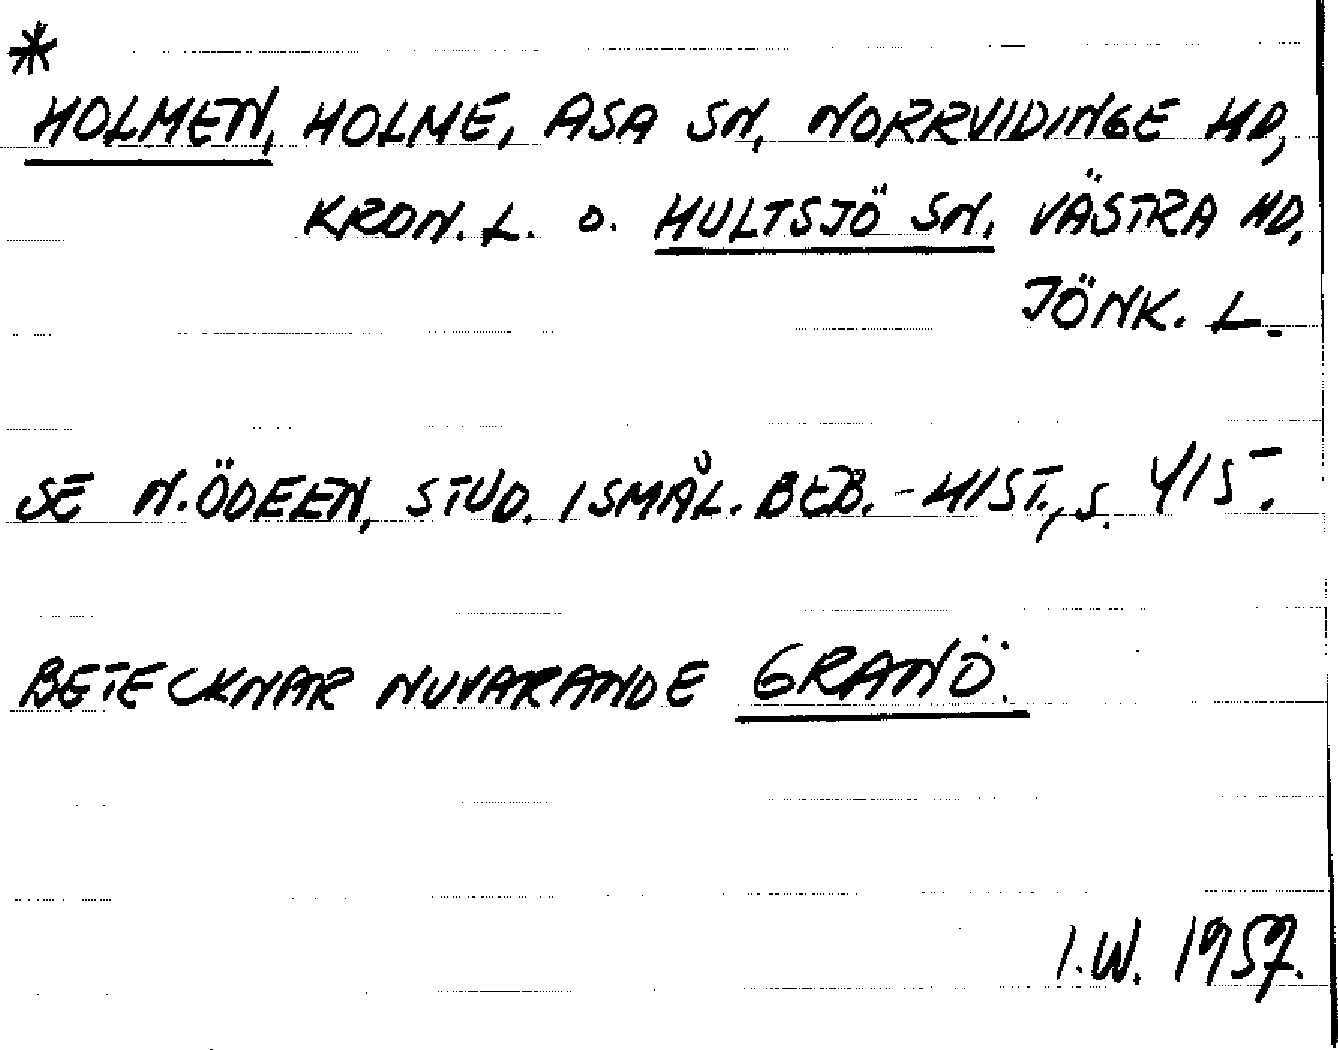 *
HOLMEN, HOLME, ASA SN, NORRVIDINGE HD,
KRON. L. o. HULTSJÖ SN, VÄSTRA HD.
JÖNK. L.
SE N. ÖDEEN, STUD. I SMÅL. BEB.-HIST., S. 415.
BETECKNAR NUVARANDE GRANÖ.
I.W. 1957.